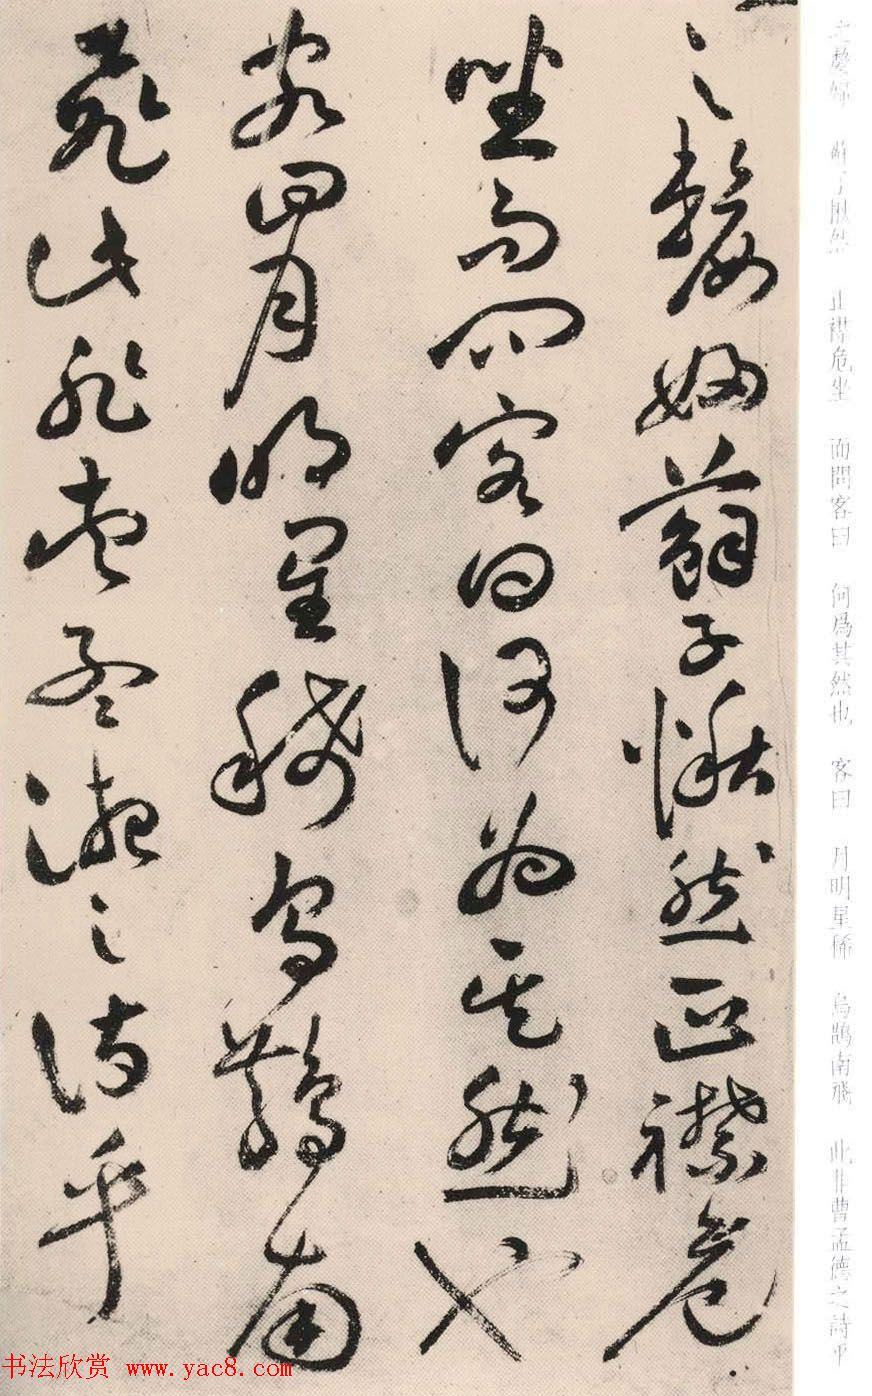 之嫠婦 蘇子愀然 正襟危坐 而問客曰 何爲其然也 客曰 月明星稀 烏鵲南飛 此非曹孟德之詩乎
之嫠婦蘇子愀然正襟危
坐而問客曰何為其然也
客曰月明星稀烏鵲南
飛此非曹孟德之詩乎
书法欣赏 www.yac8.com